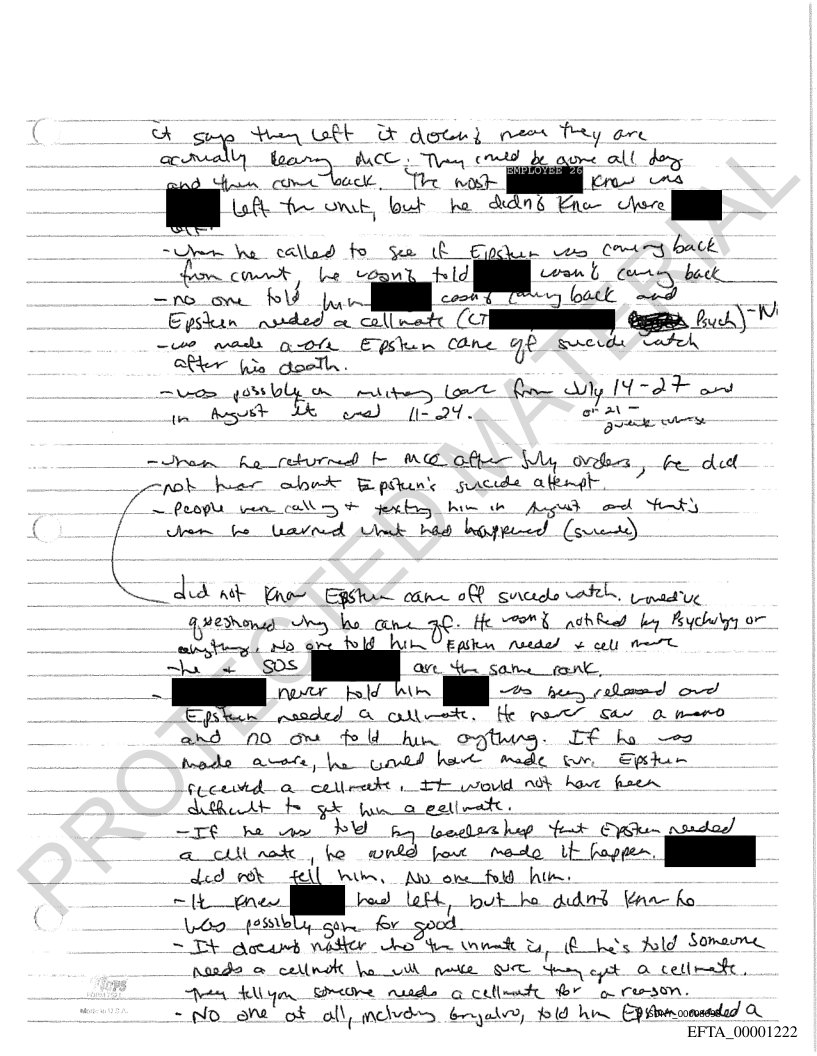 it says they left it doesn't mean they are
actually leaving MCC. They could be gone all day
and then come back. The most EMPLOYEE 26 knew was
left the unit, but he didn't know where
- when he called to see if Epstein was coming back
from court, he wasn't told wasn't coming back
- no one told him wasn't coming back and
Epstein needed a cellmate (LT Psych) -
- was made aware Epstein came off suicide watch
after his death.
- was possibly on military leave from July 14-27 and
in August it was 11-24. or 21 -
2 week course
- when he returned to MCC after July orders, he did
not hear about Epstein's suicide attempt.
- People were calling + texting him in August and that's
when he learned what had happened (suicide)
did not know Epstein came off suicide watch. would've
questioned why he came off. He wasn't notified by Psychology or
anything. No one told him Epstein needed a cell mate
- he + SOS are the same rank.
- never told him was being released and
Epstein needed a cellmate. He never saw a memo
and no one told him anything. If he was
made aware, he would have made sure Epstein
received a cellmate. It would not have been
difficult to get him a cellmate.
- If he was told by leadership that Epstein needed
a cell mate, he would have made it happen.
did not tell him. No one told him.
- It knew had left, but he didn't know he
was possibly gone for good
- It doesn't matter who the inmate is, if he's told someone
needs a cellmate he will make sure they get a cellmate.
They tell you someone needs a cellmate for a reason.
- No one at all, including told him Epstein needed a
Tops
FORM 7521
Made in U.S.A.
EFTA_00001222
PROTECTED MATERIAL